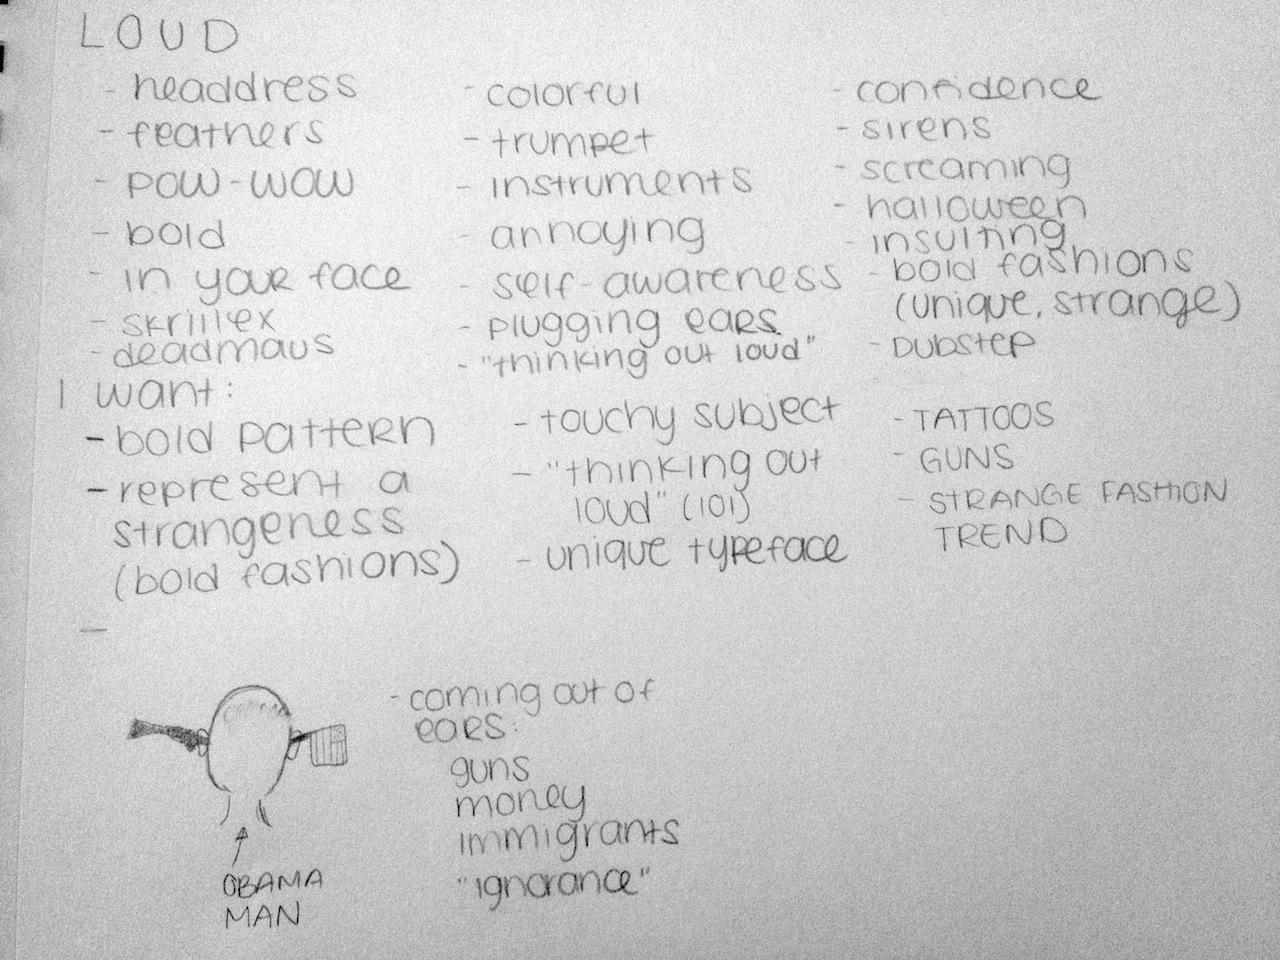 LOUD
- headdress
- feathers
- pow-wow
- bold
- in your face
- skrillex
- deadmaus
- colorful
- trumpet
- instruments
- annoying
- self-awareness
- plugging ears
- "thinking out loud"
- confidence
- sirens
- screaming
- halloween
- insulting
- bold fashions
(unique, strange)
- DUBSTEP
I want:
- bold pattern
- represent a
strangeness
(bold fashions)
-
- touchy subject
- "thinking out
loud" (101)
- unique typeface
- TATTOOS
- GUNS
- STRANGE FASHION
TREND
- coming out of
ears:
guns
money
immigrants
"ignorance"
OBAMA
MAN